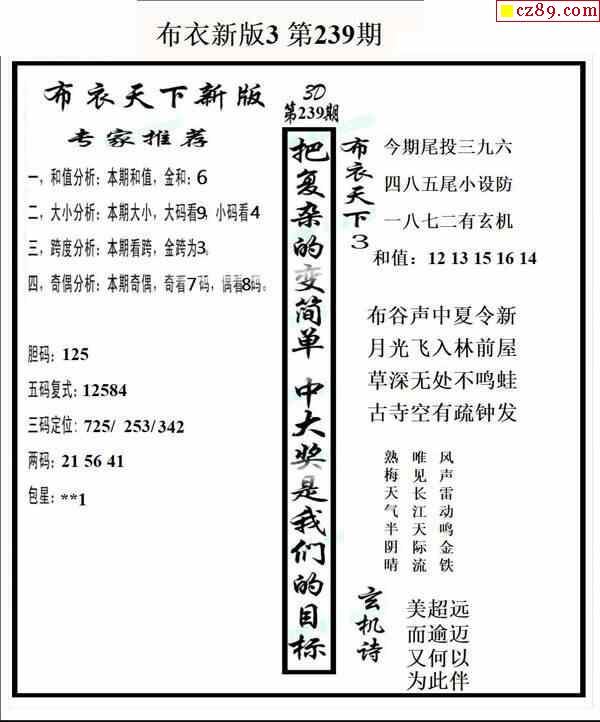 cz89.com
布衣新版3 第239期
布衣天下新版
专家推荐
一，和值分析：本期和值，金和：6
二，大小分析：本期大小，大码看9，小码看4
三，跨度分析：本期看跨，金跨为3。
四，奇偶分析：本期奇偶，奇看7码，偶看8码。
胆码：125
五码复式：12584
三码定位：725/ 253/342
两码：21 56 41
包星：**1
3D
第239期
把复杂的变简单 中大奖是我们的目标
布衣天下3
今期尾投三九六
四八五尾小设防
一八七二有玄机
和值：12 13 15 16 14
布谷声中夏令新
月光飞入林前屋
草深无处不鸣蛙
古寺空有疏钟发
熟梅天气半阴晴
唯见长江天际流
风声雷动鸣金铁
玄机诗
美超远
而逾迈
又何以
为此伴